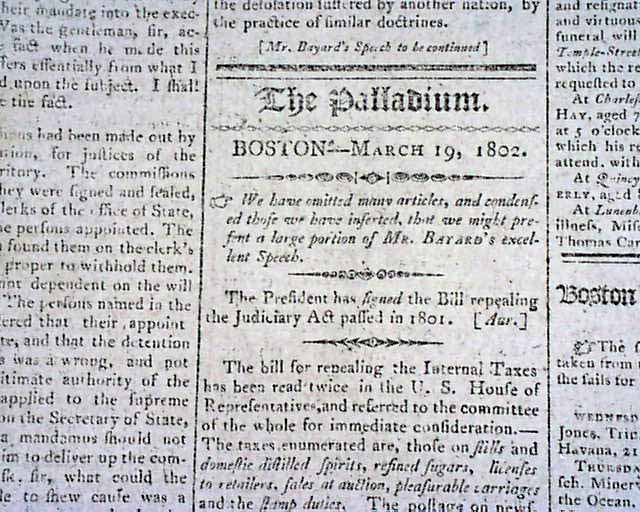 their mandate into the exec-
Was the gentleman, sir, ac-
fact when he made this
fers essentially from what I
d upon the subject. I shall
e the fact.
had been made out by
for justices of the
ritory. The commissions
hey were signed and sealed,
lerks of the office of State,
se persons appointed. The
found them on the clerk's
proper to withhold them.
not dependent on the will
The persons named in the
ered that their appoint
te, and that the detention
s was a wrong, and not
itimate authority of the
applied to the supreme
on the Secretary of State,
a mandamus should not
im to deliver up the com-
sk, sir, what could the
le to shew cause was a
the desolation suffered by another nation, by
the practice of similar doctrines.
[Mr. Bayard's Speech to be continued]
The Palladium.
BOSTON—MARCH 19, 1802.
☞ We have omitted many articles, and condens-
ed those we have inserted, that we might pre-
sent a large portion of MR. BAYARD's excel-
lent Speech.
The President has signed the Bill repealing
the Judiciary Act passed in 1801. [Aur.]
The bill for repealing the Internal Taxes
has been read twice in the U. S. House of
Representatives, and referred to the committee
of the whole for immediate consideration.—
The taxes enumerated are, those on stills and
domestic distilled spirits, refined sugars, licenses
to retailers, sales at auction, pleasurable carriages
and the stamp duties. The postage on news-
and resignat
and virtuous
funeral will
Temple-Street
which the re
requested to
At Charles
HAY, aged 7
at 5 o'clock
which his re
attend. with
At Quincy
ERLY, aged
At Lunenb
illness, Mis
Thomas Car
Boston
☞ The
taken from
the sails for
WEDNESD
Jones, Trin
Havana, 21
THURSDA
sch. Minerv
the Ocean,